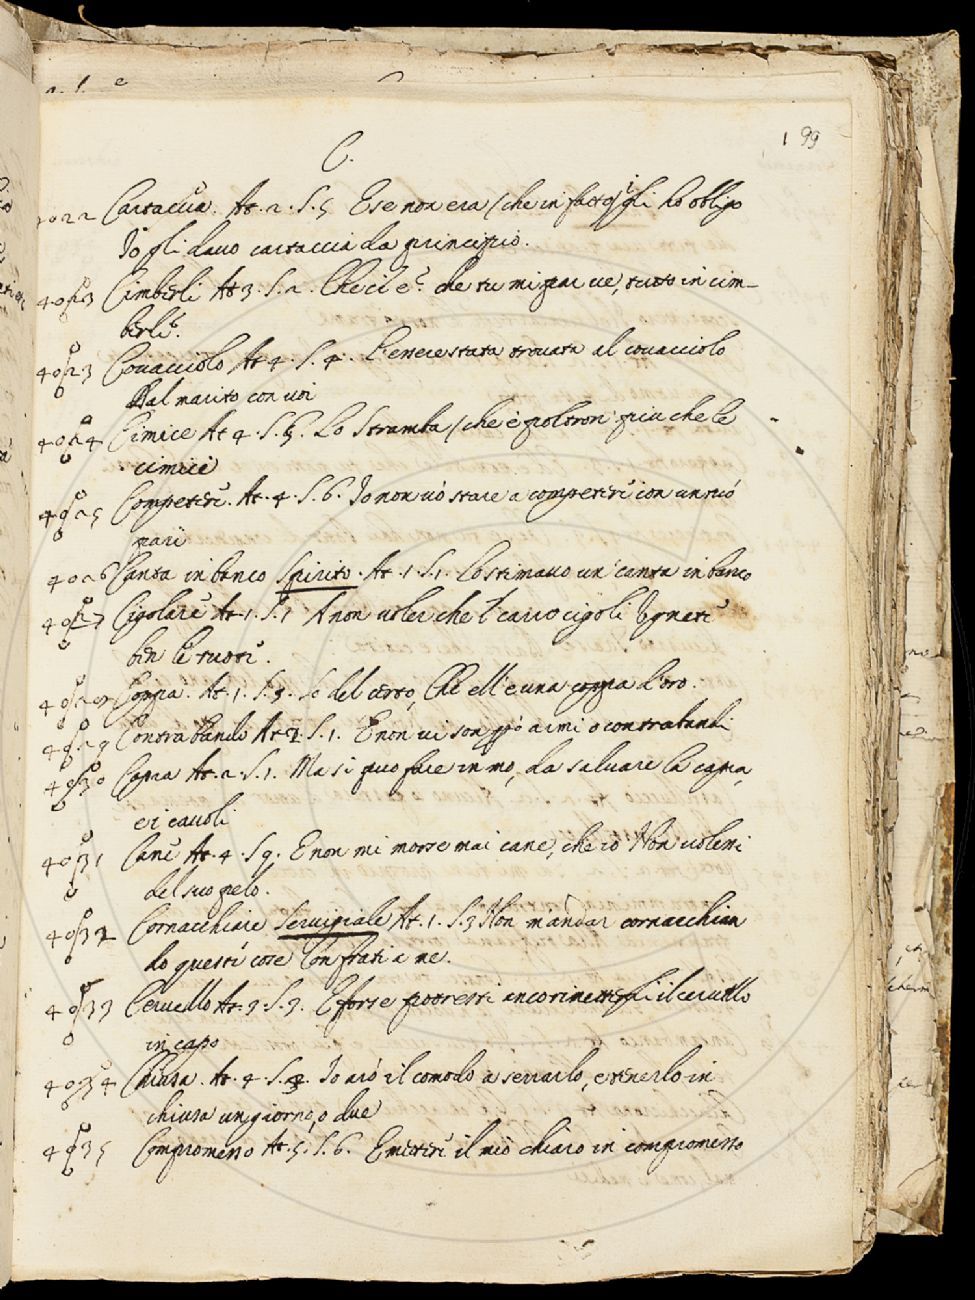 199
C.
4022 Cartaccia. At. 2. S. 5 E se non era (che in facto gli ho obbligo
Io gli davo cartaccia da principio.
4023 Cimberli At 3. S. 2. Che ci è? che tu mi pai ve, tutto in cim-
berli?
4023 Covacciolo At 4. S. 4. L'essere stata trovata al covacciolo
Dal marito con voi
4024 Cimice At 4. S. 5. Lo Stramba (che è poltron più che le
cimici
4025 Competere. At. 4. S. 6. Io non vò stare a competere con un mio
pari
4026 Canta in banco Spirito. At. 1. S. 1. Lo stimavo un canta in banco
4027 Cigolare At. 1. S. 1 A non voler che 'l carro cigoli Ugneti
ben le ruote.
Coppa. At. 1. S. 3. So del certo, Che ell'è una coppa d'oro.
4029 Contrabando At 2. S. 1. E non vi son però armi o contrabandi
4030 Capra At. 2. S. 1. Ma si può fare in mo, da salvare la capra,
e i cavoli
4031 Cane At. 4. S. 9. E non mi morse mai cane, che io Non volessi
del suo pelo.
4032 Cornacchiare Servigiale At. 1. S. 3 Non mandar cornacchian
do queste cose Con frati a me.
4033 Cervello At. 3. S. 3. E forse potresti ancor mettergli il cervello
in capo
4034 Chiusa. At. 4. S. 2. Io arò il comodo a serrarlo, e tenerlo in
chiusa un giorno, o due
4035 Compromesso At. 5. S. 6. E mettere il mio chiaro in compromesso